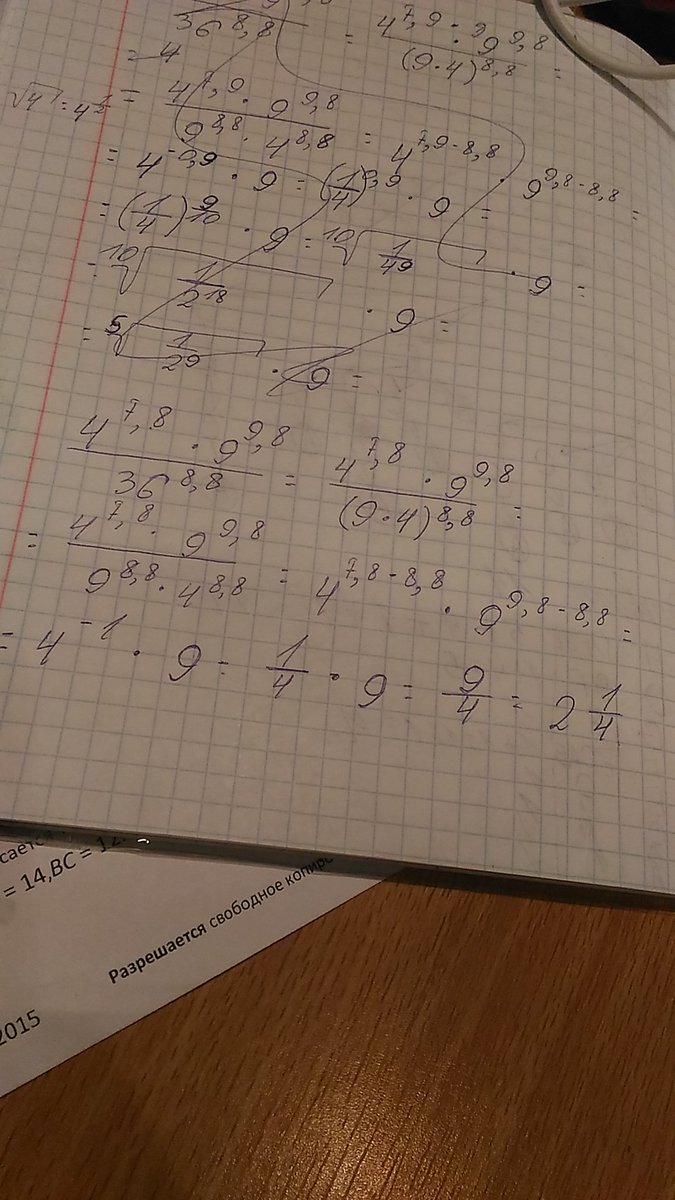 36^8,8 = (4^7,9 · 9^9,8)/(9·4)^8,8 =
= 4
√4 = 4^½
= (4^7,9 · 9^9,8)/(9^8,8 · 4^8,8) = 4^7,9-8,8 · 9^9,8-8,8 =
= 4^-0,9 · 9 = (1/4)^0,9 · 9 =
= (1/4)^9/10 · 9 = ¹⁰√(1/4^9) · 9 =
= ¹⁰√(1/2^18) · 9 =
= ⁵√(1/2^9) · 9 =
(4^7,8 · 9^9,8)/36^8,8 = (4^7,8 · 9^9,8)/(9·4)^8,8 =
= (4^7,8 · 9^9,8)/(9^8,8 · 4^8,8) = 4^7,8-8,8 · 9^9,8-8,8 =
= 4^-1 · 9 = 1/4 · 9 = 9/4 = 2 1/4
= 14, BC = 12.
Разрешается свободное
2015